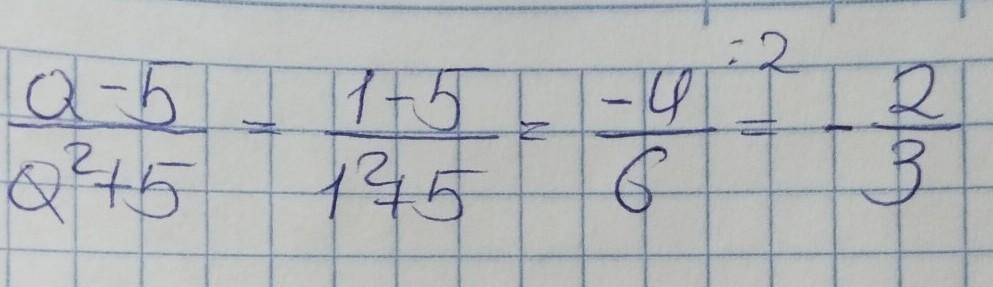 :2
a-5 / a²+5 = 1-5 / 1²+5 = -4 / 6 = - 2 / 3